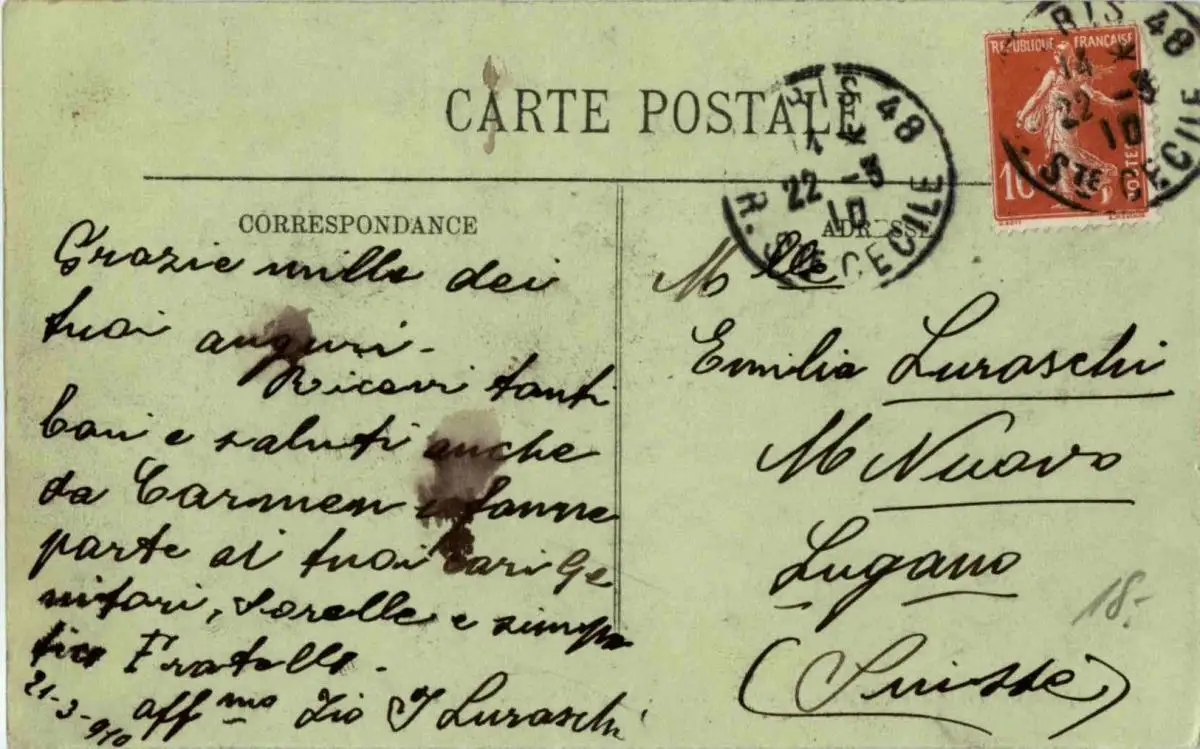 CARTE POSTALE
RIS 48
14 *
22 -3
10
R. STE CECILE
REPUBLIQUE FRANÇAISE
10
POSTES
IS 48
*
22 -3
10
R. STE CECILE
CORRESPONDANCE
Grazie mille dei
tuoi auguri -
Ricevi tanti
baci e saluti anche
da Carmen e fanne
parte ai tuoi cari Ge
nitori, Sorelle e simpa
tico Fratello -
21-3-910
aff mo Zio J Luraschi
ADRESSE
Mlle
Emilia Luraschi
M Nuovo
Lugano
(Suisse)
18.-